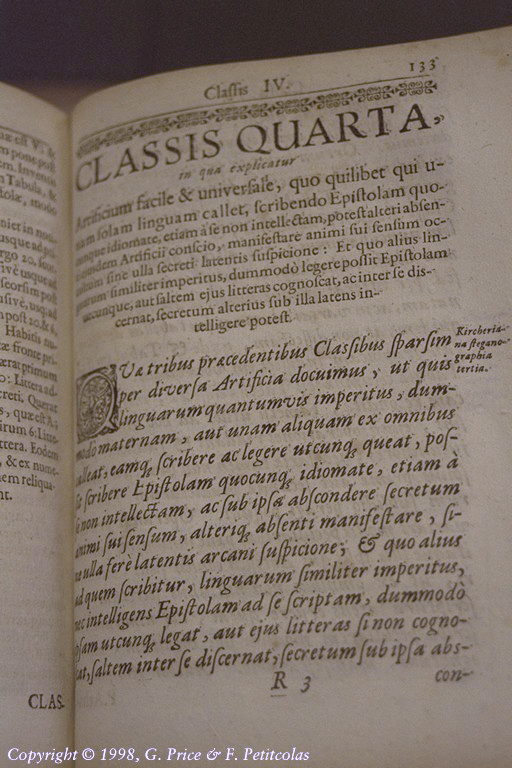 Classis IV.
133
CLASSIS QUARTA,
in qua explicatur
Artificium facile & universale, quo quilibet qui u-
nam solam linguam callet, scribendo Epistolam quo-
cunque idiomate, etiam à se non intellectam, potest alteri absen-
ejusdem Artificii conscio, manifestare animi sui sensum oc-
cultum sine ulla secreti latentis suspicione: Et quo alius lin-
guarum similiter imperitus, dummodò legere possit Epistolam
utcunque, aut saltem ejus litteras cognoscat, ac inter se dis-
cernat, secretum alterius sub illa latens in-
telligere potest.
QUæ tribus præcedentibus Classibus sparsim
per diversa Artificia docuimus, ut quis
linguarum quantumvis imperitus, dum-
modo maternam, aut unam aliquam ex omnibus
calleat, eamq; scribere ac legere utcunq; queat, pos-
sit scribere Epistolam quocunq; idiomate, etiam à
se non intellectam, ac sub ipsa abscondere secretum
animi sui sensum, alteriq; absenti manifestare, si-
ne ulla ferè latentis arcani suspicione; & quo alius
ad quem scribitur, linguarum similiter imperitus,
nec intelligens Epistolam ad se scriptam, dummodò
ipsam utcunq; legat, aut ejus litteras si non cogno-
cat, saltem inter se discernat, secretum sub ipsa abs-
R 3
con-
Kircheria-
na stegano-
graphia
tertia.
CLAS-
Copyright © 1998, G. Price & F. Petitcolas